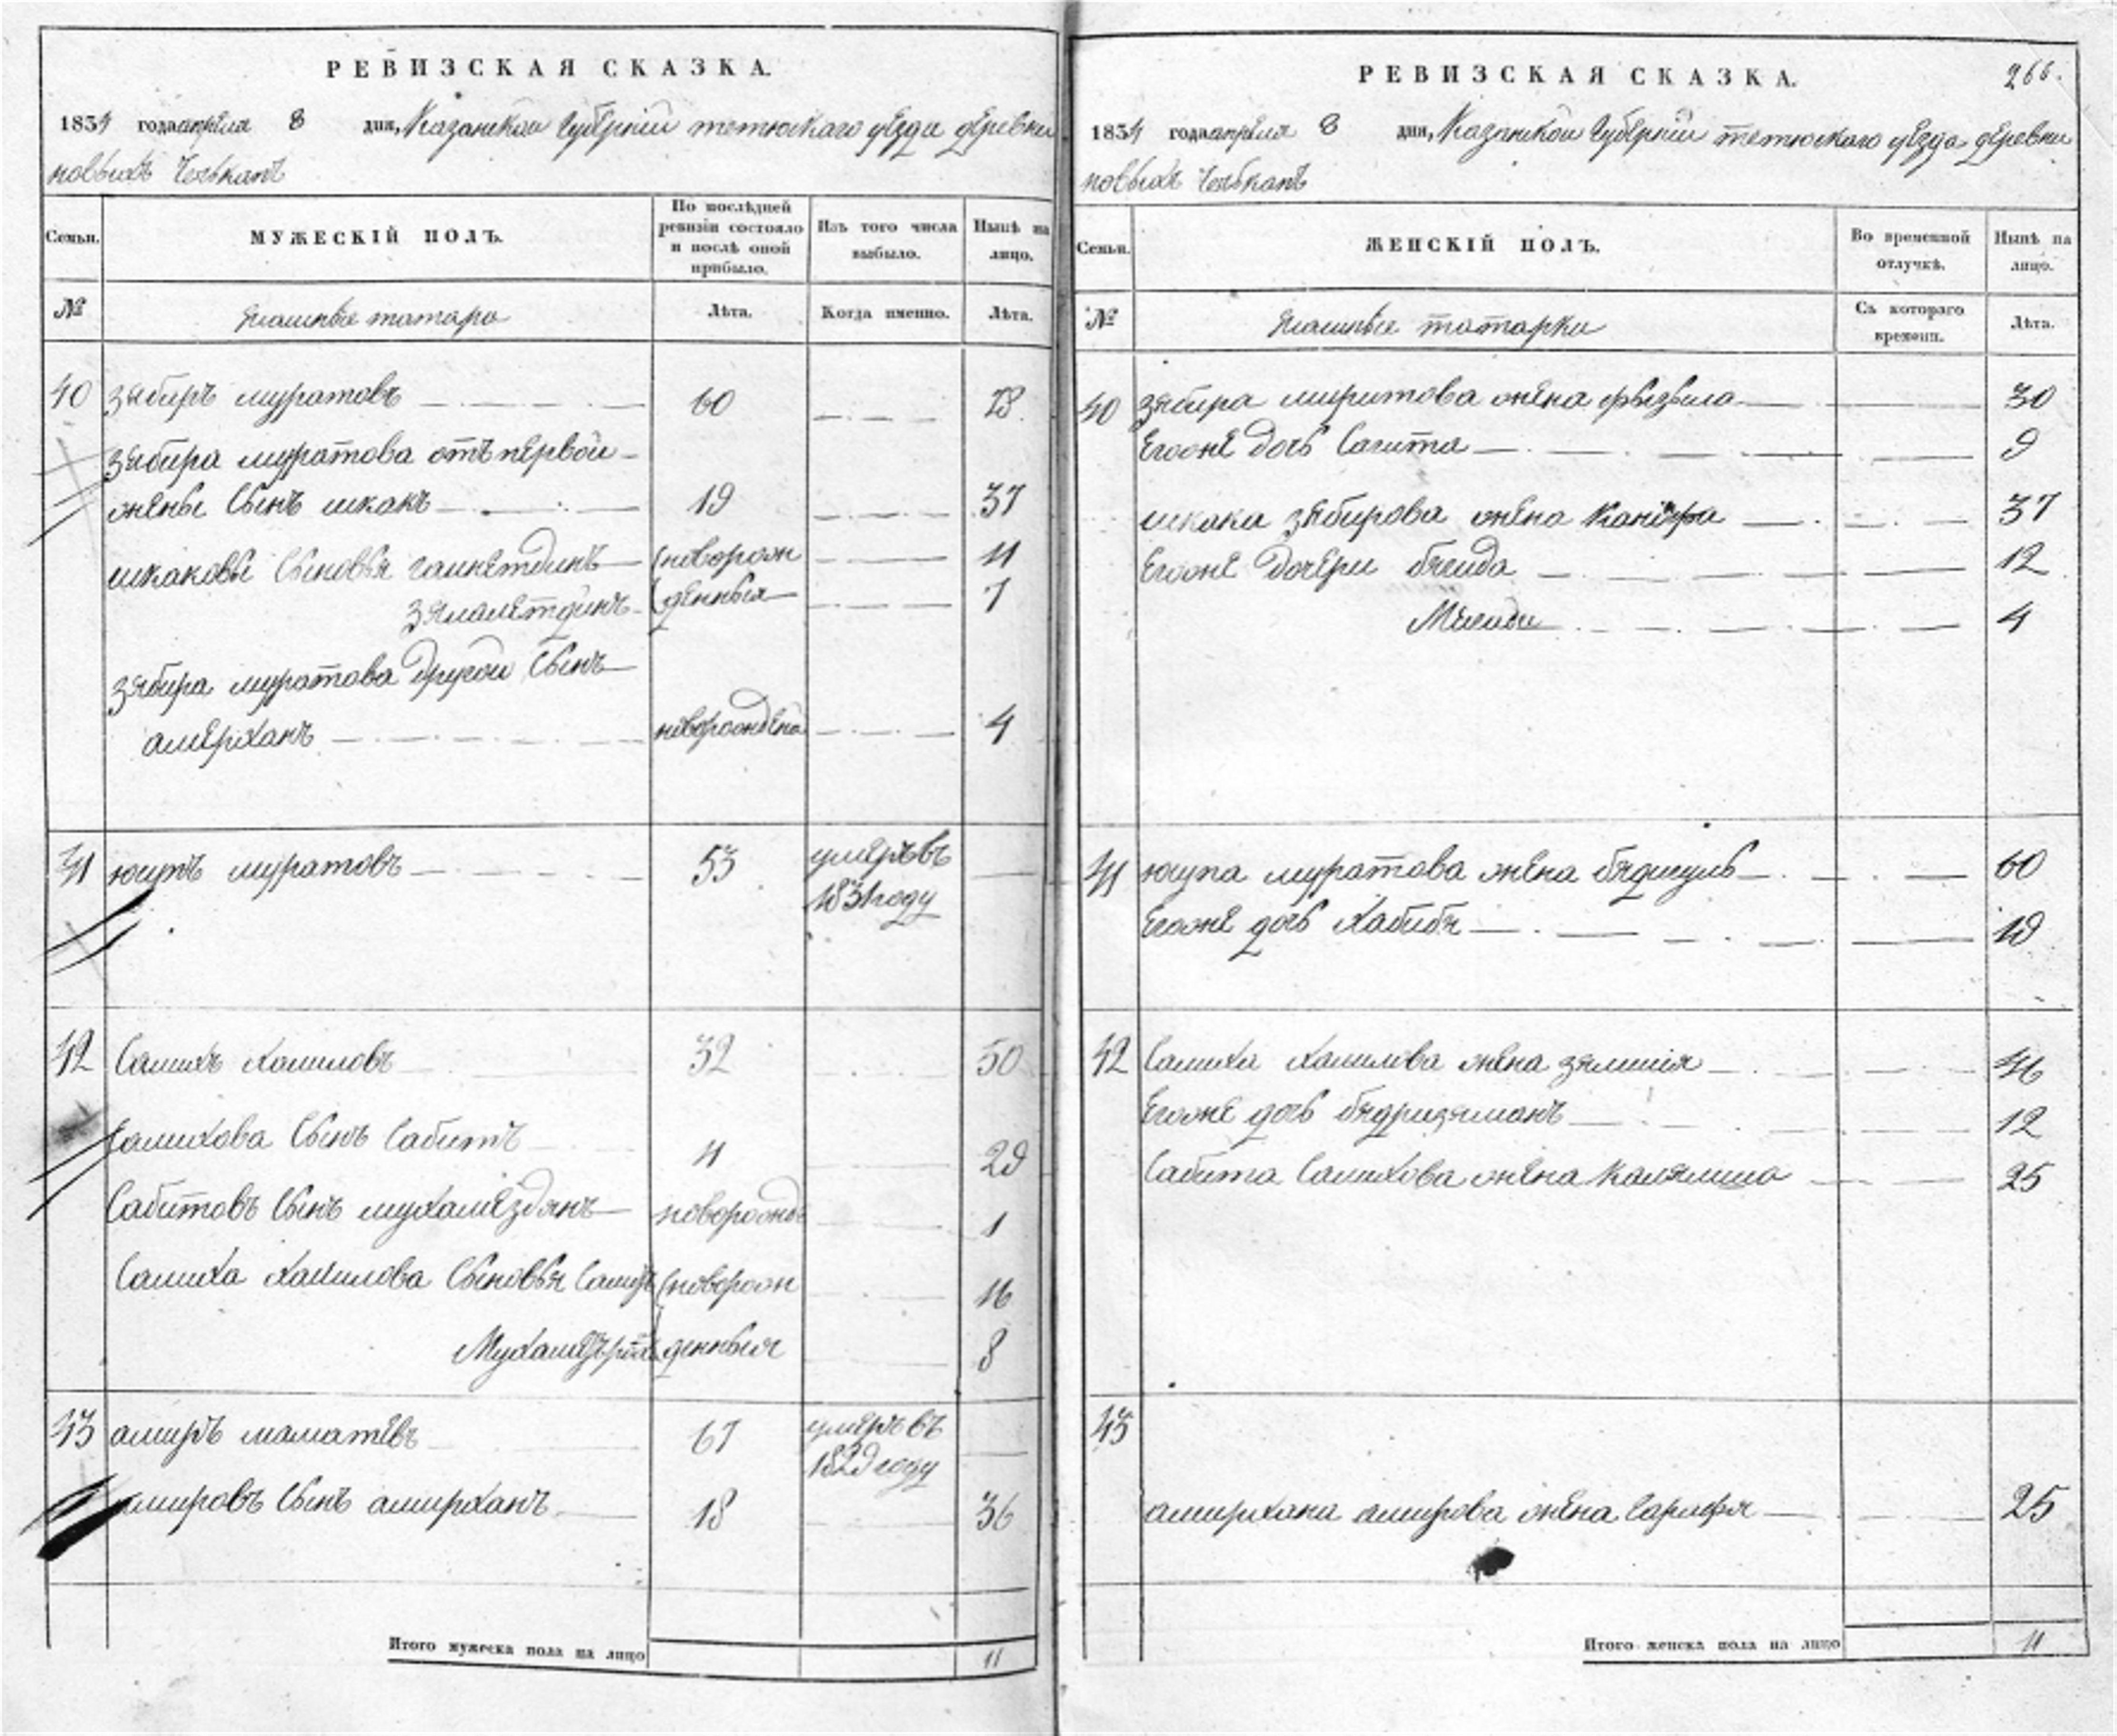 РЕВИЗСКАЯ СКАЗКА.
1834 года апреля 8 дня, Казанской Губернии тетюскаго уезда деревни
новыхъ Чечкапъ
Семьи.
МУЖЕСКІЙ ПОЛЪ.
По послѣдней ревизіи состояло и послѣ оной прибыло.
Изъ того числа выбыло.
Нынѣ на лицо.
№
Ясашные татара
Лѣта.
Когда именно.
Лѣта.
40 зябиръ муратовъ 60 78
зябира муратова отъ первой
жены сынъ искакъ 19 37
искаковы сыновья гайнетдинъ новорож 11
зямалетдинъ денныя 7
зябира муратова другой сынъ
амерханъ новорождена 4
41 юсупъ муратовъ 53 умеръ въ
1831 году
42 Салихъ халиловъ 32 50
Салихова сынъ Сабитъ 11 29
Сабитовъ сынъ мухамезянъ новорожд 1
Салиха халилова сыновья новорож 16
денныя 8
43 амиръ маматевъ 67 умеръ въ
1829 году
амировъ сынъ амирханъ 18 36
Итого мужеска пола на лицо 11
РЕВИЗСКАЯ СКАЗКА. 266.
1834 года апреля 8 дня, Казанской Губернии тетюскаго уезда деревни
новыхъ Чечкапъ
Семьи.
ЖЕНСКІЙ ПОЛЪ.
Во временной отлучкѣ.
Нынѣ на лицо.
№
Ясашные татарки
Съ котораго времени.
Лѣта.
40 зябира муратова жена фызыла 30
Егоже дочь Сагита 9
искака зябирова жена 37
Егоже дочери 12
4
41 юсупа муратова жена бядигуль 60
Егоже дочь хабибя 19
42 Салиха халилова жена зялишя 46
Егоже дочь бядризяманъ 12
Сабита Салихова жена Калямша 25
43
амирхана амирова жена Сарафя 25
Итого женска пола на лицо 11